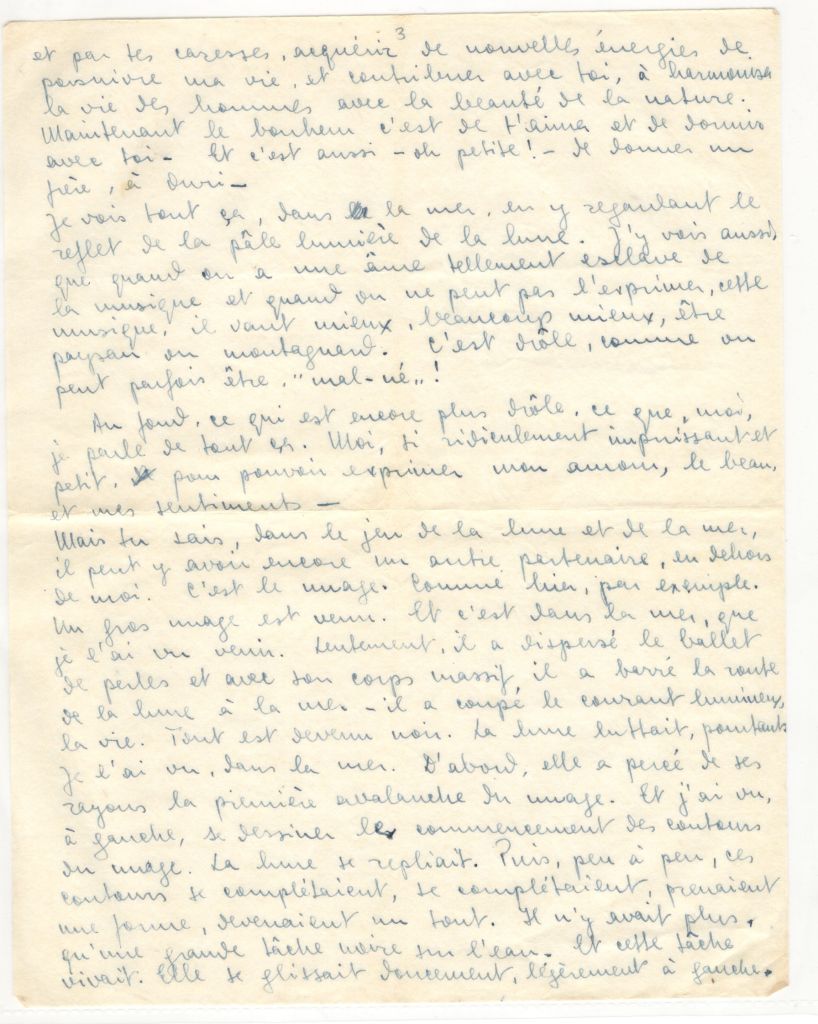 3
et par tes caresses, acquérir de nouvelles énergies de
poursuivre ma vie, et contribuer avec toi, à harmoniser
la vie des hommes avec la beauté de la nature.
Maintenant le bonheur c'est de t'aimer et de dormir
avec toi - Et c'est aussi - oh petite! - de donner un
frère, à Ouri -
Je vois tout ça, dans la mer, en y regardant le
reflet de la pâle lumière de la lune. J'y vois aussi,
que quand on a une âme tellement esclave de
la musique et quand on ne peut pas l'exprimer, cette
musique, il vaut mieux, beaucoup mieux, être
paysan ou montagnard. C'est drôle, comme on
peut parfois être, "mal-né"!
Au fond, ce qui est encore plus drôle, ce que, moi,
je parle de tout ça. Moi, si ridiculement impuissant et
petit, pour pouvoir exprimer mon amour, le beau,
et mes sentiments -
Mais tu sais, dans le jeu de la lune et de la mer,
il peut y avoir encore un autre partenaire, en dehors
de moi. C'est le nuage. Comme hier, par exemple.
Un gros nuage est venu. Et c'est dans la mer, que
je l'ai vu venir. Lentement, il a dispersé le ballet
de perles et avec son corps massif il a barré la route
de la lune à la mer - il a coupé le courant lumineux,
la vie. Tout est devenu noir. La lune luttait, pourtant.
Je l'ai vu, dans la mer. D'abord, elle a percé de ses
rayons la première avalanche du nuage. Et j'ai vu,
à gauche, se dessiner les commencement des contours
du nuage. La lune se repliait. Puis, peu à peu, ces
contours se complétaient, se complétaient, prenaient
une forme, devenaient un tout. Il n'y avait plus,
qu'une grande tâche noire sur l'eau. Et cette tâche
vivait. Elle se glissait doucement, légèrement à gauche.